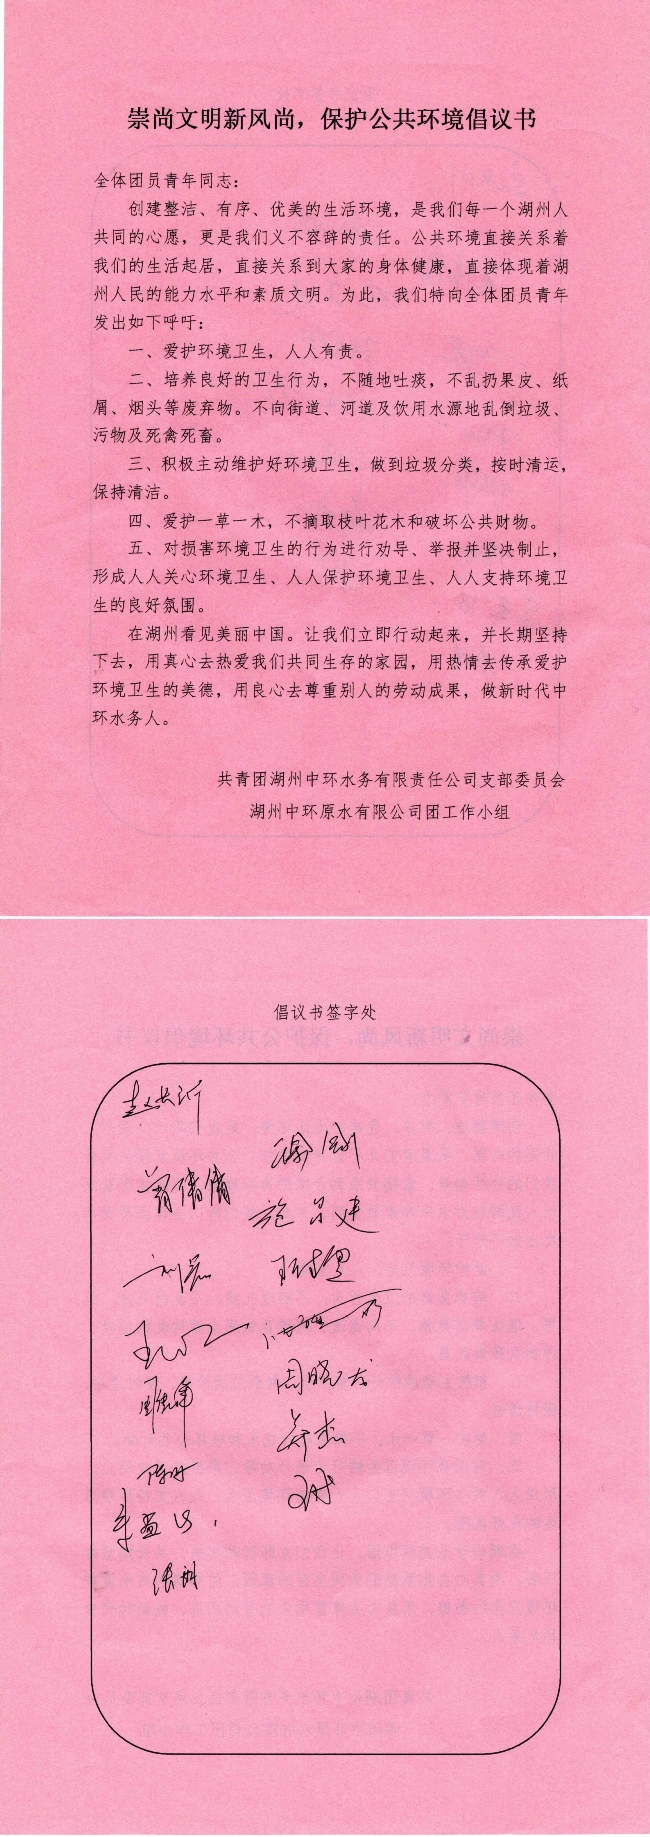 崇尚文明新风尚，保护公共环境倡议书
全体团员青年同志：
创建整洁、有序、优美的生活环境，是我们每一个湖州人
共同的心愿，更是我们义不容辞的责任。公共环境直接关系着
我们的生活起居，直接关系到大家的身体健康，直接体现着湖
州人民的能力水平和素质文明。为此，我们特向全体团员青年
发出如下呼吁：
一、爱护环境卫生，人人有责。
二、培养良好的卫生行为，不随地吐痰，不乱扔果皮、纸
屑、烟头等废弃物。不向街道、河道及饮用水源地乱倒垃圾、
污物及死禽死畜。
三、积极主动维护好环境卫生，做到垃圾分类，按时清运，
保持清洁。
四、爱护一草一木，不摘取枝叶花木和破坏公共财物。
五、对损害环境卫生的行为进行劝导、举报并坚决制止，
形成人人关心环境卫生、人人保护环境卫生、人人支持环境卫
生的良好氛围。
在湖州看见美丽中国。让我们立即行动起来，并长期坚持
下去，用真心去热爱我们共同生存的家园，用热情去传承爱护
环境卫生的美德，用良心去尊重别人的劳动成果，做新时代中
环水务人。
共青团湖州中环水务有限责任公司支部委员会
湖州中环原水有限公司团工作小组
倡议书签字处
曾倩倩
周晓龙